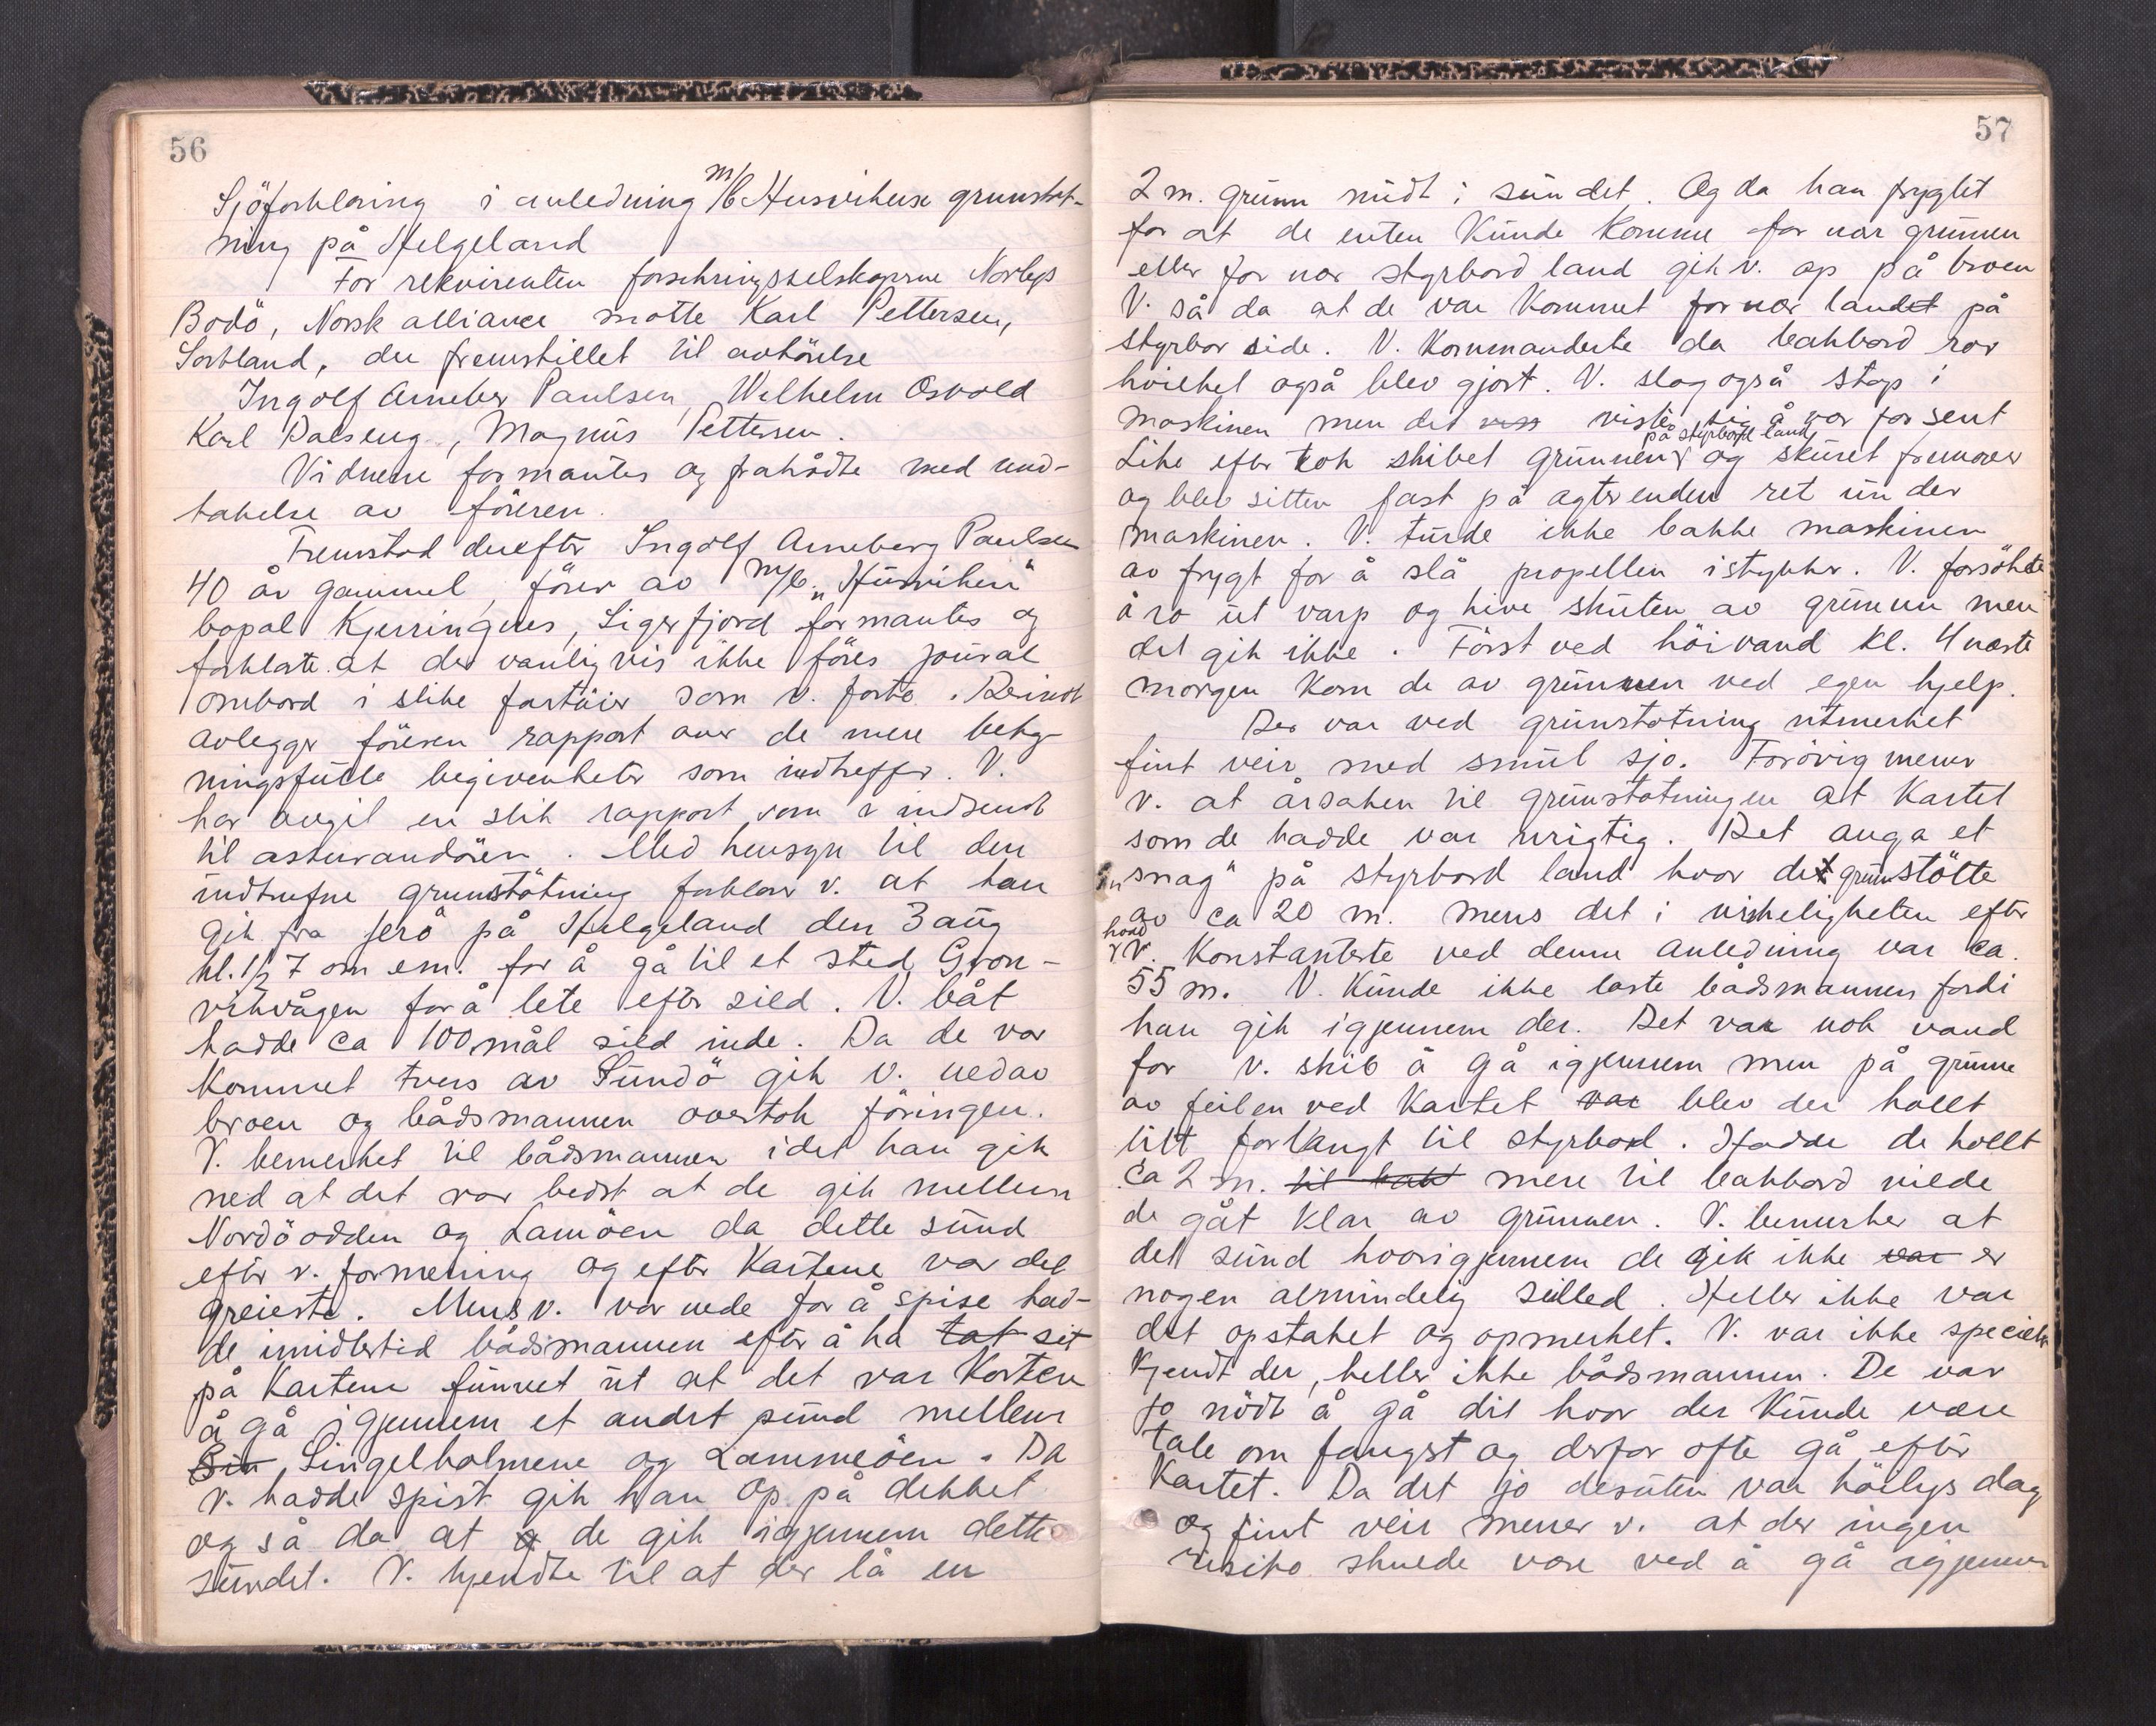 56
Sjöforklaring i anledning m/b Husvikens grunstöt-
ning på Helgeland
For rekvirenten forsekringsselskapene Norlys
Bodö, Norsk alliance møtte Karl Pettersen,
Sortland, der fremstillet til avhörelse
Ingolf Arneberg Paulsen, Wilhelm Osvald
Karl Dalseng, Magnus Pettersen.
Vidnene formantes og frahådte med und-
takelse av föreren.
Fremstod derefter Ingolf Arneberg Paulsen
40 år gammel, förer av m/b „Husviken"
bopal Kjerringnes, Sigerfjord formantes og
forklarte at der vanligvis ikke föres jounal
ombord i slike fartöier som v. förte. Derimot
avlegger föreren rapport over de mere betyg-
ningsfulle begivenheter som indtreffer. V.
har avgit en slik rapport som er indsendt
til assurandören. Med hensyn til den
indtrufne grunstötning forklarer v. at han
gik fra Jerö på Helgeland den 3 aug
kl. 1/2 7 om em. for å gå til et sted Gron-
vikvågen for å lete efter sild. V. båt
hadde ca 100 mål sild inde. Da de var
kommet tvers av Sundö gik v. ned av
broen og bådsmannen overtok föringen.
V. bemerket til bådsmannen idet han gik
ned at det var bedst at de gik mellem
Nordöodden og Lamöen da dette sund
efter v. formening og efter kartene var det
greieste. Mens v. var nede for å spise had-
de imidlertid bådsmannen efter å ha tat set
på kartene funnet ut at det var korten
å gå igjennem et andet sund mellem
Sin Singelholmene og Lammeöen. Da
v. hadde spist gik han op på dekket
og så da at de gik igjennem dette
sundet. V. kjendte til at der lå en
57
2 m. grunn midt i sundet. Og da han frygtet
for at de enten kunde komme for nær grunnen
eller for nær styrbord land gik v. op på broen
V. så da at de var kommet for nær landet på
styrbor side. V. kommanderte da bakbord ror
hvilket også blev gjort. V. slog også stop i
maskinen men det viss viste sig å var for sent
Like efter tok skibet grunnen på styrbord land og skuret fremover
og blev sitten fast på agterenden ret under
maskinen. V. turde ikke bakke maskinen
av frygt for å slå propellen istykker. V. forsökte
å ro ut varp og hive skuten av grunnen men
det gik ikke. Först ved höivand kl. 4 næste
morgen kom de av grunnen ved egen hjelp.
Der var ved grunstötning utmerket
fint veir med smul sjö. Forövrig mener
v. at årsaken til grunstötningen at kartet
som de hadde var urigtig. Det anga et
„snag" på styrbord land hvor det grunstötte
av ca 20 m. mens det i virkeligheten efter
hvad v. konstanterte ved denne anledning var ca.
55 m. V. kunde ikke laste bådsmannen fordi
han gik igjennem der. Det var nok vand
for v. skib å gå igjennem men på grunn
av feilen ved kartet var blev der hollt
litt for langt til styrbord. Hadde de hollt
ca 2 m. til bak mere til bakbord vilde
de gåt klar av grunnen. V. bemerker at
det sund hvorigjennem de gik ikke var er
nogen almindelig seilled. Heller ikke var
det opstaket og opmerket. V. var ikke specielt
kjendt der, heller ikke bådsmannen. De var
jo nödt å gå dit hvor der kunde være
tale om fangst og derfor ofte gå efter
kartet. Da det jo desuten var höilys dag
og fint veir mener v. at der ingen
risiko skulde være ved å gå igjennem